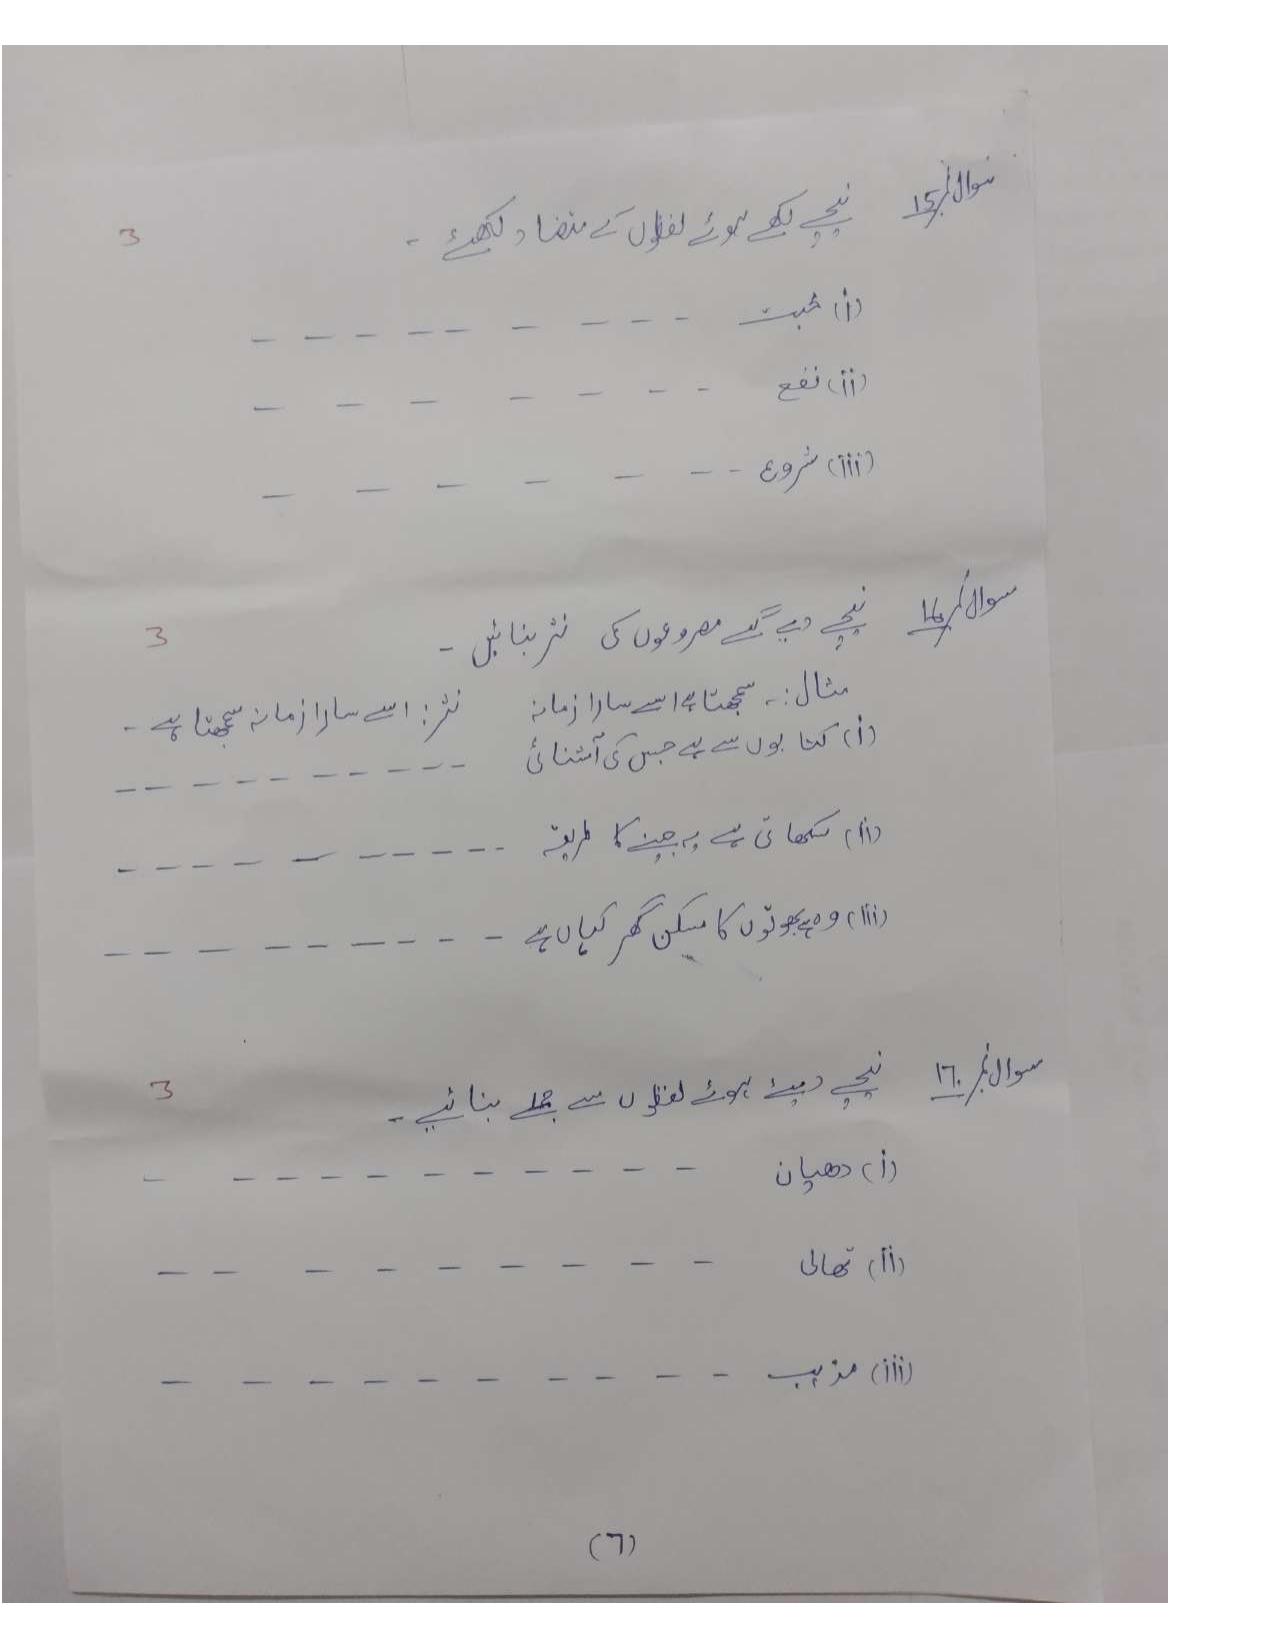 سوال نمبر 15 نیچے لکھے ہوئے لفظوں کے متضاد لکھئے - 3
(i) محبت - - - - - - - - -
(ii) نفع - - - - - - - -
(iii) شروع - - - - - - -
سوال نمبر 16 نیچے دیے گئے مصروعوں کی نثر بنائیں - 3
مثال :- سمجھتا ہے اسے سارا زمانہ نثر : اسے سارا زمانہ سمجھتا ہے -
(i) کتابوں سے ہے جس کی آشنائی - - - - - - - - - -
(ii) سکھاتی ہے یہ جینے کا طریقہ - - - - - - - - - -
(iii) وہ ہے بھوتوں کا مسکن گھر کہاں ہے - - - - - - - - - -
سوال نمبر ۱٦ نیچے دیئے ہوئے لفظوں سے جملے بنائیے - 3
(i) دھیان - - - - - - - - - - -
(ii) تھالی - - - - - - - - -
(iii) مذہب - - - - - - - - - -
(٦)